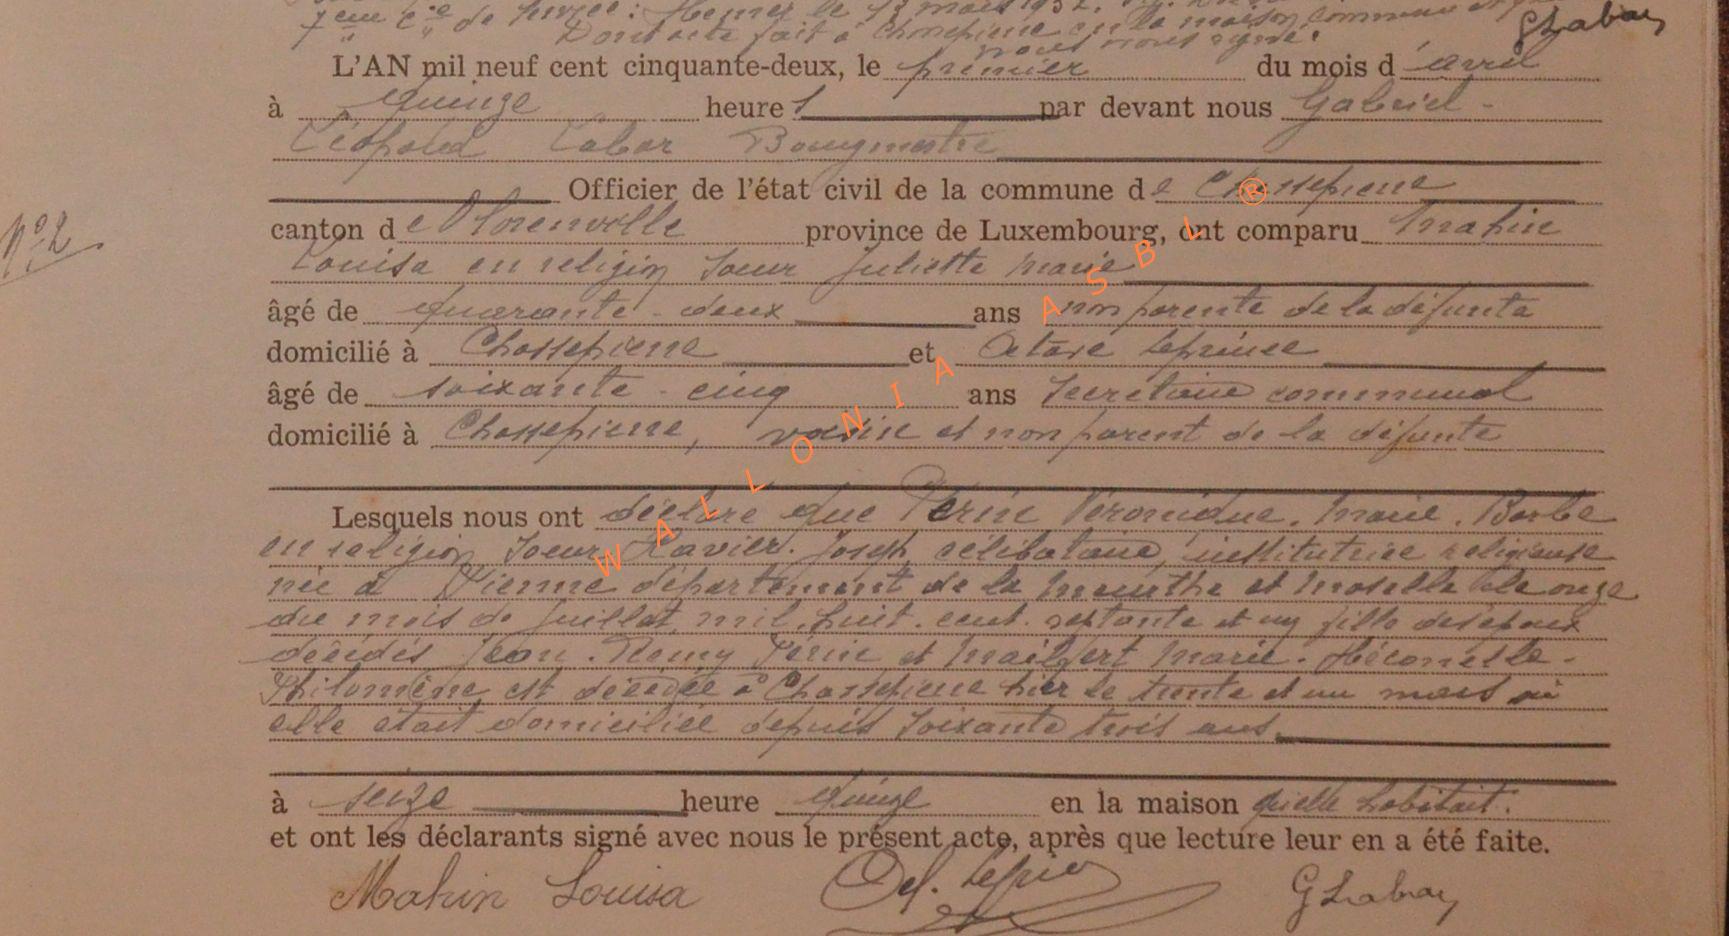 7eme Cie de
Dont acte fait à Chassepierre en la maison commune
nous avons signé. GLabar
L'AN mil neuf cent cinquante-deux, le premier du mois d'avril
à quinze heures par devant nous Gabriel
Léopold Labar Bourgmestre
Officier de l'état civil de la commune de Chassepierre
N° 2
canton de Florenville province de Luxembourg, ont comparu Mahin
Louisa en religion Soeur Juliette Marie
âgé de quarante-deux ans non parente de la défunte
domicilié à Chassepierre et Octave Leprince
âgé de soixante-cinq ans Secrétaire communal
domicilié à Chassepierre, voisin et non parent de la défunte
Lesquels nous ont déclaré que Périn Véronique. Marie. Barbe
en religion Soeur Xavier. Joseph, célibataire, institutrice religieuse
née à Vienne département de la Meurthe et Moselle le onze
du mois de Juillet mil. huit. cent. septante et un fille des époux
décédés Jean. Remy Périn et Marie.
Philomène est décédée à Chassepierre hier le trente et un mars où
elle était domiciliée depuis soixante trois ans
à seize heure quinze en la maison qu'elle habitait.
et ont les déclarants signé avec nous le présent acte, après que lecture leur en a été faite.
Mahin Louisa GLabar
WALLONIA ASBL ®